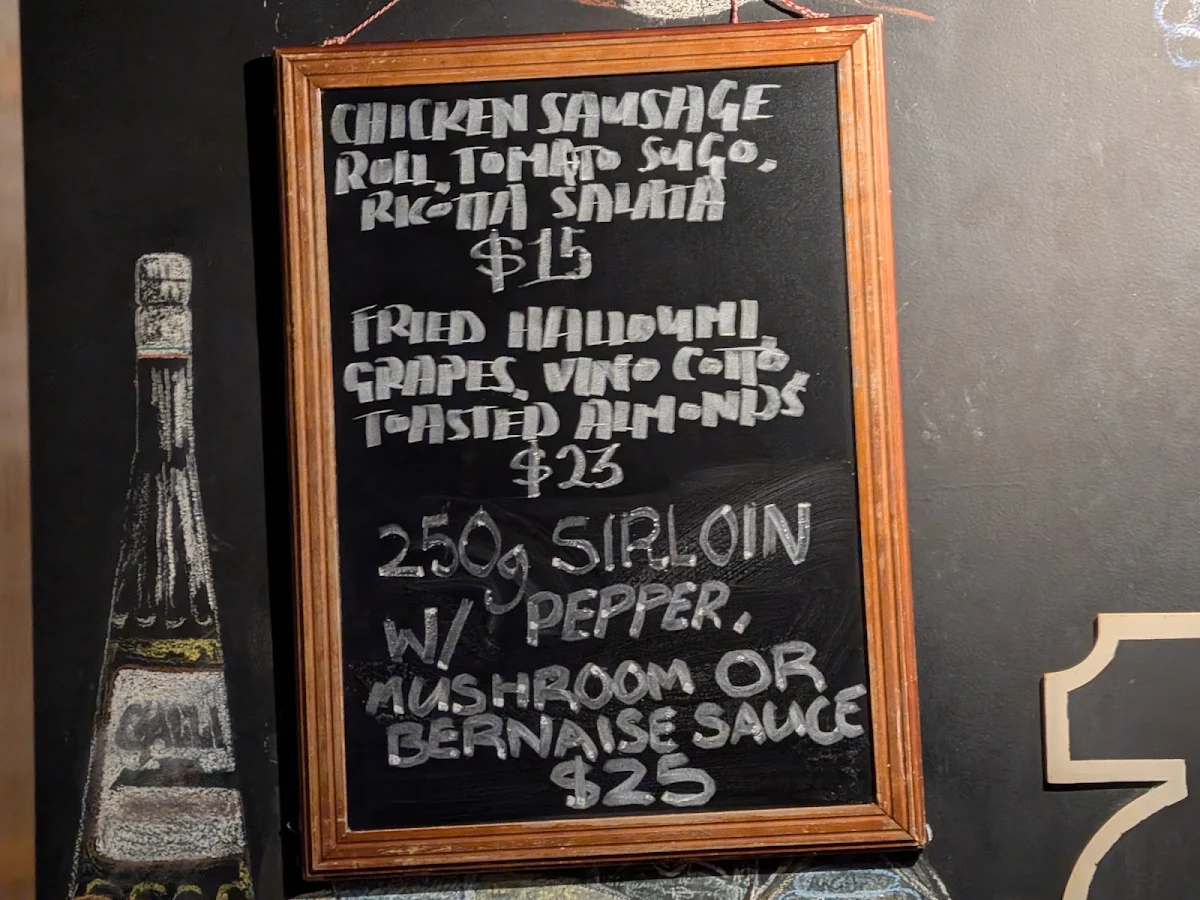 CHICKEN SAUSAGE
ROLL, TOMATO SUGO,
RICOTTA SALATA
$15
FRIED HALLOUMI,
GRAPES, VINO COTTO,
TOASTED ALMONDS
$23
250g SIRLOIN
W/ PEPPER,
MUSHROOM OR
BERNAISE SAUCE
$25